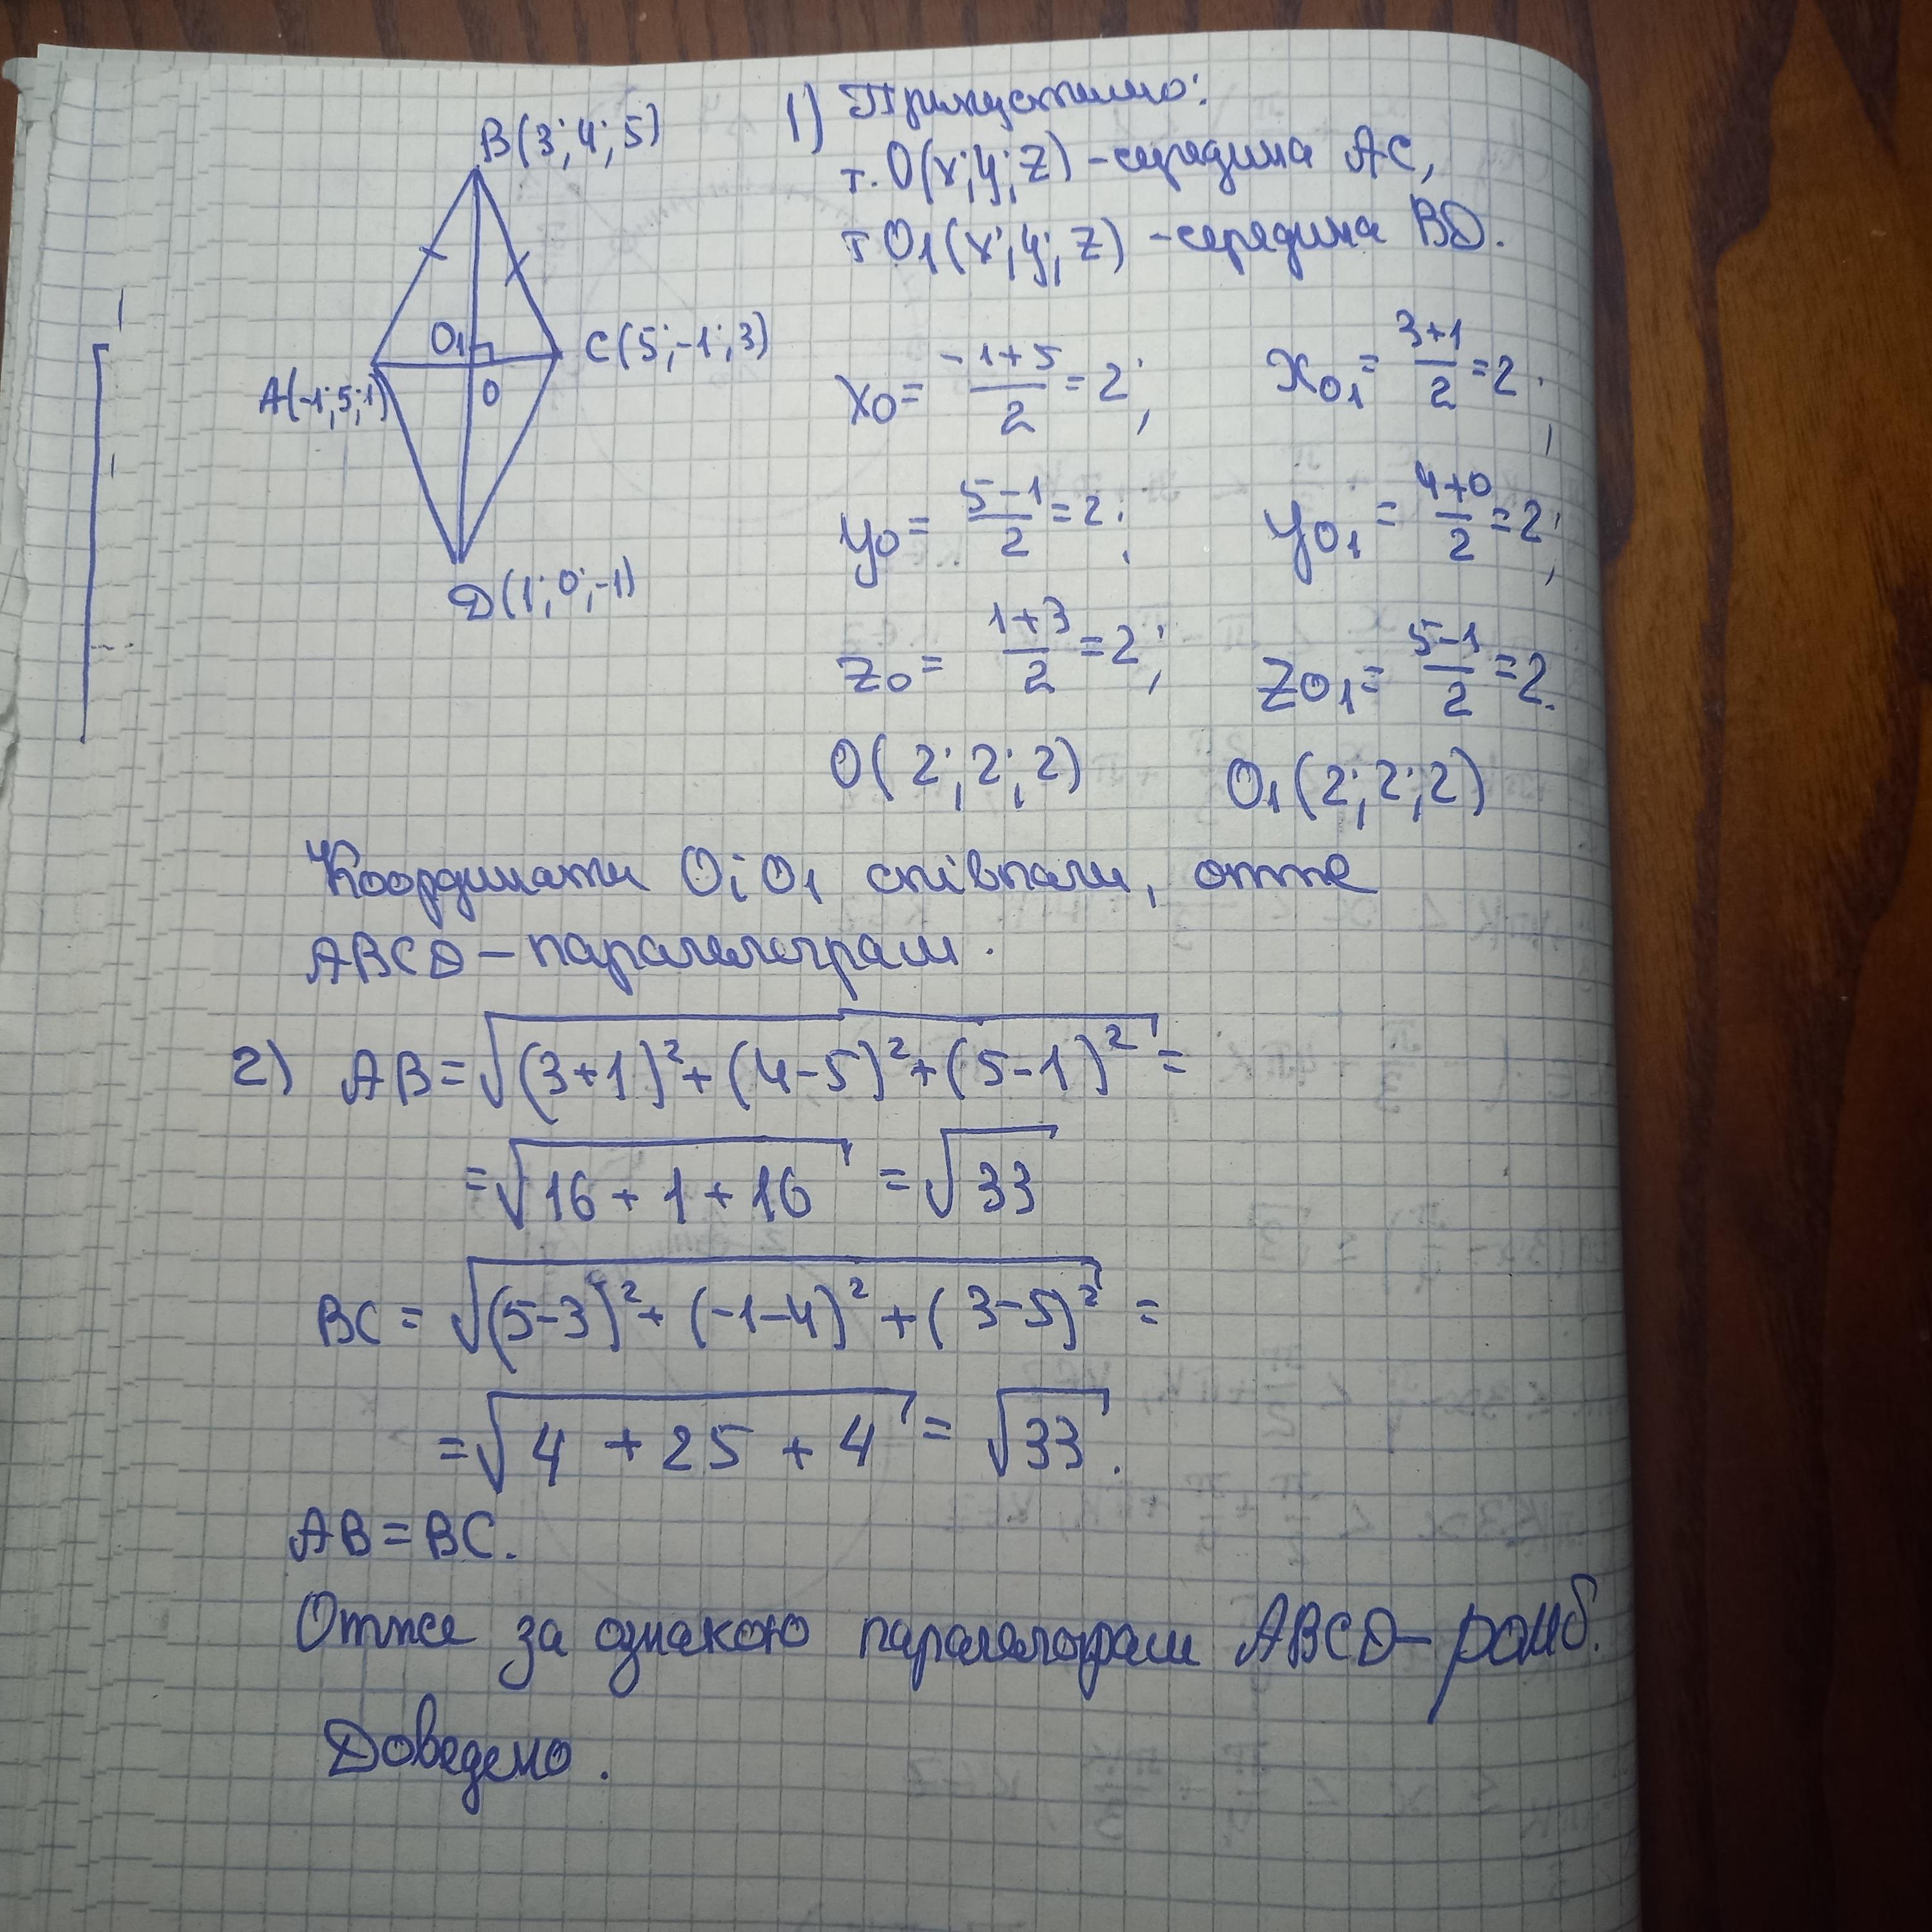 B(3;4;5)
O₁
C(5;-1;3)
A(-1;5;1)
O
D(1;0;-1)
1) Припустимо:
т. O(x;y;z) - середина AC,
т O₁(x;y;z) - середина BD.
x₀ = (-1+5)/2 = 2; x₀₁ = (3+1)/2 = 2;
y₀ = (5-1)/2 = 2; y₀₁ = (4+0)/2 = 2;
z₀ = (1+3)/2 = 2; z₀₁ = (5-1)/2 = 2.
O(2;2;2) O₁(2;2;2)
Координати O і O₁ співпали, отже
ABCD - паралелограм.
2) AB = √((3+1)² + (4-5)² + (5-1)²) =
= √(16 + 1 + 16) = √33
BC = √((5-3)² + (-1-4)² + (3-5)²) =
= √(4 + 25 + 4) = √33.
AB = BC.
Отже за ознакою паралелограм ABCD - ромб.
Доведено.